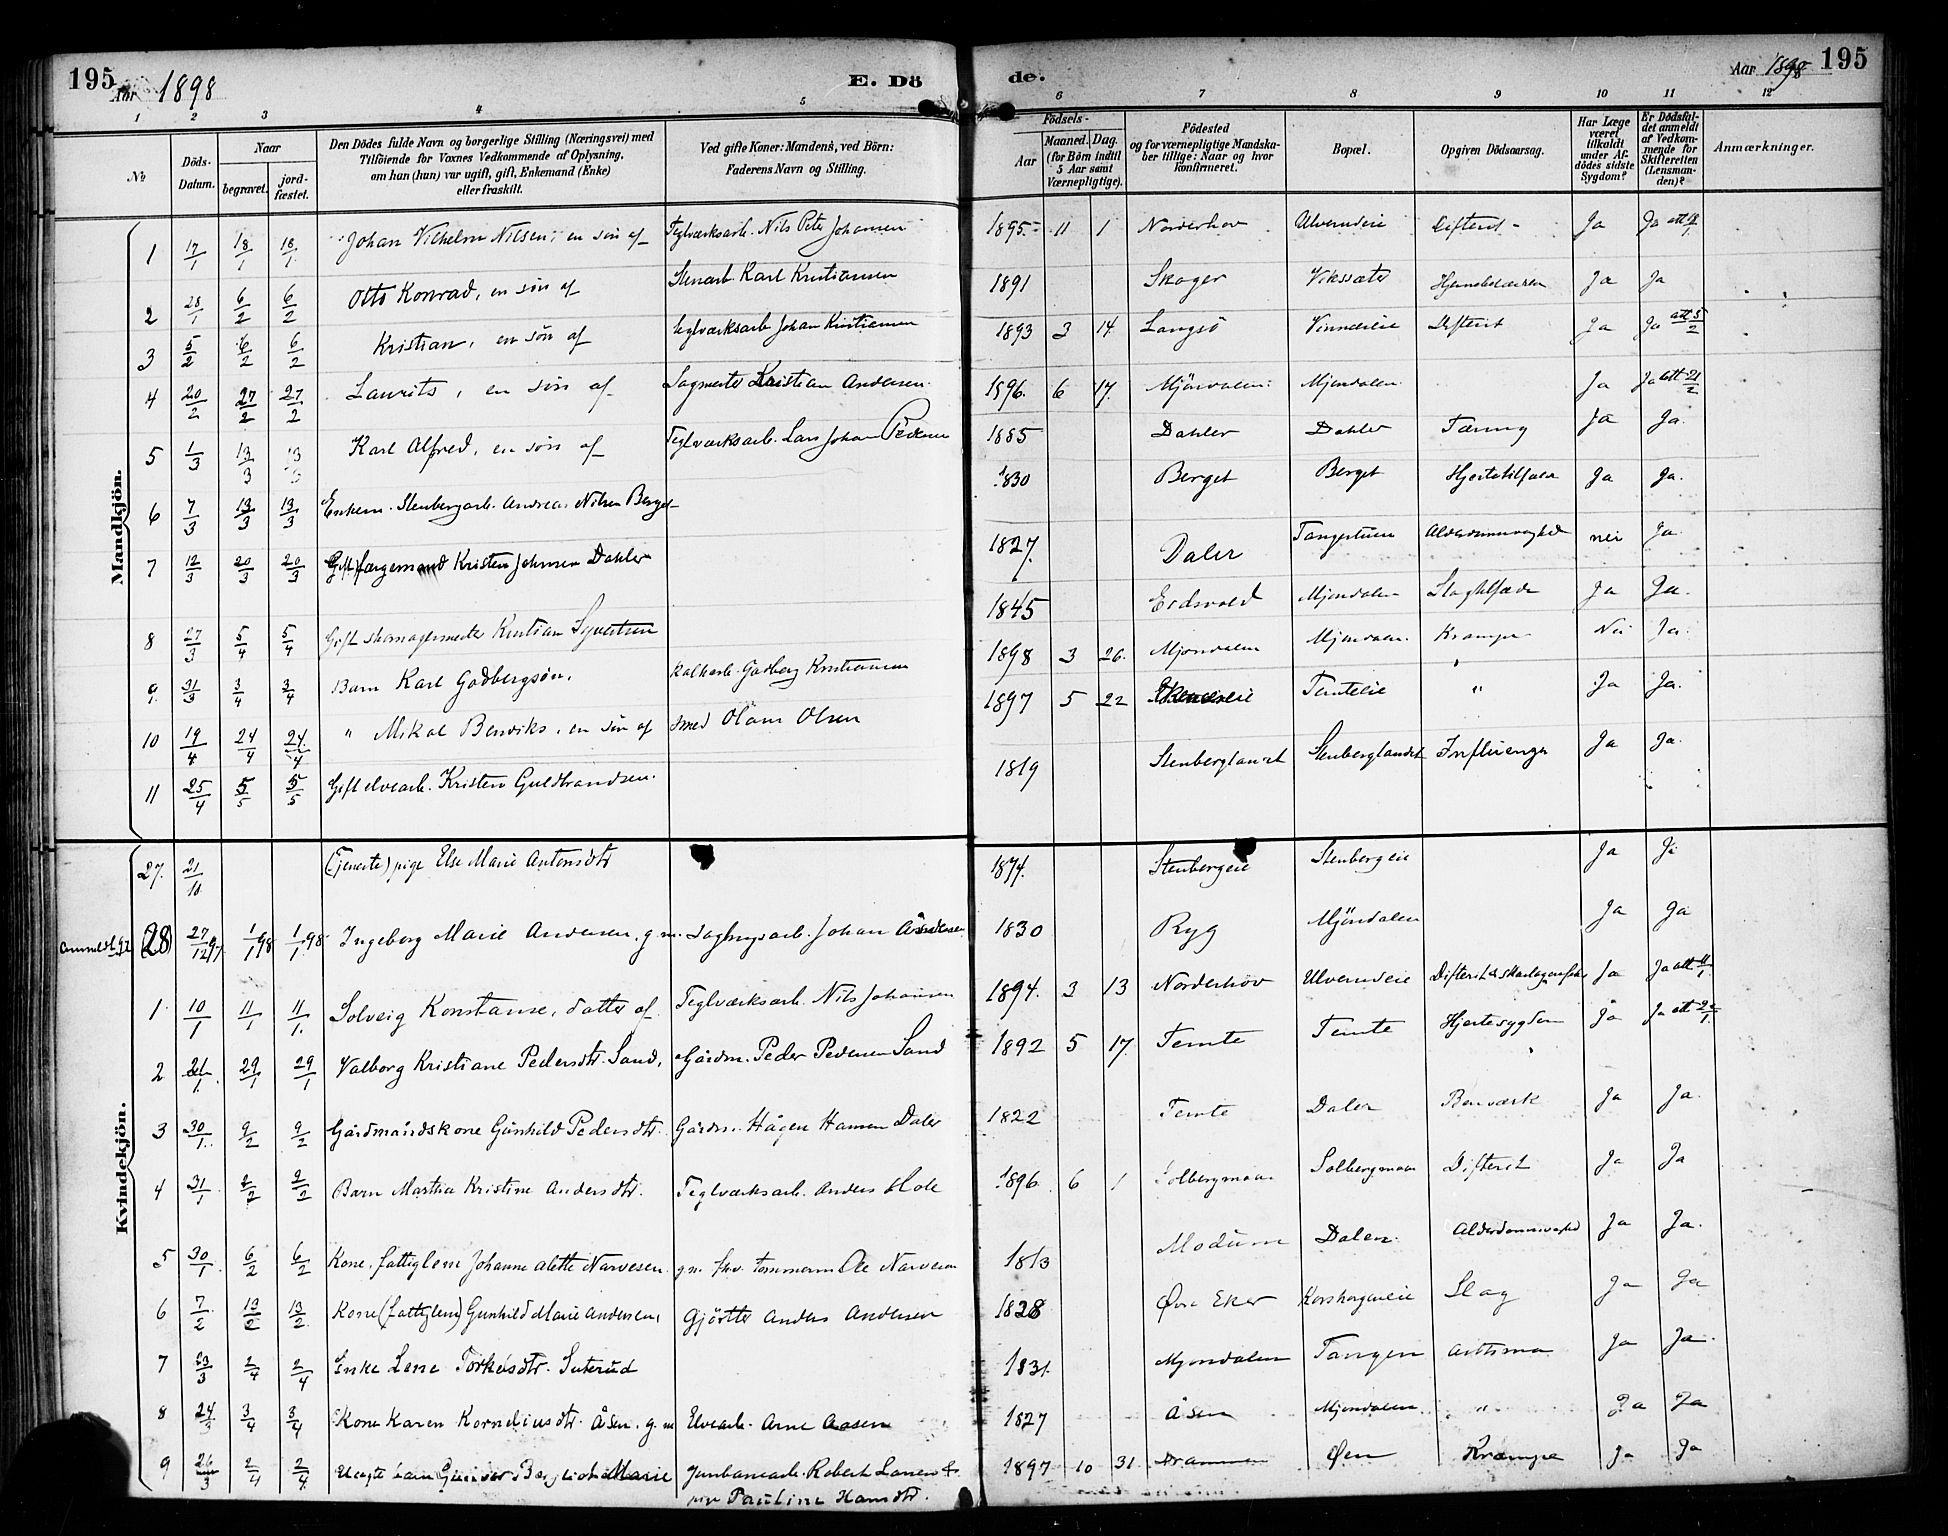 195 Aar 1898 E. Dö
de. Aar 1898 195
1 2 3 4 5 6 7 8 9 10 11 12
No Döds-Datum. Naar begravet. jord-fæstet. Den Dödes fulde Navn og borgerlige Stilling (Næringsvei) med Tilföiende for Voxnes Vedkommende af Oplysning, om han (hun) var ugift, gift, Enkemand (Enke) eller fraskilt. Ved gifte Koner: Mandens, ved Börn: Faderens Navn og Stilling. Födsels- Aar Maaned. Dag. (for Börn indtil 5 Aar samt Værnepligtige). Födested og for værnepligtige Mandskaber tillige: Naar og hvor konfirmeret. Bopæl. Opgiven Dödsaarsag. Har Læge været tilkaldt under Afdödes sidste Sygdom? Er Dödsfaldet anmeldt af Vedkommende for Skifteretten (Lensmanden)? Anmærkninger.
Mandkjön.
1 17/1 18/1 18/1 Johan Vilhelm Nilsen, en sön af Teglværksarb. Nils Peter Johansen 1895 11 1 Norderhov Ulverudeie Difterit Ja Ja att 18/1
2 28/1 6/2 6/2 Otto Konrad, en sön af Stenarb. Karl Kristiansen 1891 Skoger Vikssæter Ja Ja
3 5/2 6/2 6/2 Kristian, en sön af Teglværksarb Johan Kristiansen 1893 3 14 Langsö Difterit Ja Ja att 5/2
4 20/2 27/2 27/2 Laurits, en sön af Sagmester Kristian Andersen 1896. 6 17. Mjöndalen Mjöndalen Ja Ja att 21/2
5 1/3 13/3 13/3 Karl Alfred, en sön af Teglværksarb. Lars Johan Pedersen 1885 Dahler Dahler Tæring Ja Ja.
6 7/3 13/3 13/3 Enkem. Stenbergarb. Andreas Nilsen Berget 1830 Berget Berget Ja Ja.
7 12/3 20/3 20/3 Gift færgemand Kristen Johnsen Dahler 1827. Daler Alderdomssvaghed nei Ja.
8 27/3 5/4 5/4 Gift skomagermester Kristian Syvertsen 1845 Eidsvold Mjöndalen Slagtilfælde Ja Ja.
9. 31/3 3/4 3/4 Barn Karl Godbergsön. Kalkarb. Godberg Kristiansen 1898 3 26. Mjöndalen Mjöndalen. Krampe Nei Ja.
10 19/4 24/4 24/4 " Mikal Bendiks, en sön af smed Olam Olsen 1897 5 22 Temteeie " Ja Ja.
11 25/4 5/5 5/5 Gift elvearb. Kristen Guldbrandsen. 1819 Stenberglandet Stenberglandet Influenza Ja Ja.
Kvindekjön.
27. 21/10 (Tjeneste) pige Else Marie Antonsdtr 1874. Stenbergeie Stenbergeie Ja Ja
(28) 27/12 97 1/1 98 1/1 98. Ingeborg Marie Andersen. g.m. Sagbrugsarb. Johan Andersen 1830 Ryg Mjöndalen Ja Ja
1. 10/1 11/1 11/1. Solveig Konstanse, datter af Teglværksarb. Nils Johansen 1894. 3 13 Norderhov Ulverudeie Ja Ja att 11/1.
2 29/1 29/1 Valborg Kristiane Pedersdtr. Sand, Gårdm. Peder Pedersen Sand 1892 5 17. Temte Temte Hjertesygdom Ja Ja att
3 30/1. 9/2 9/2 Gårdmandskone Gunhild Pedersdtr. Gårdm. Hågen Hansen Daler 1822 Temte Daler Benværk Ja Ja.
4 31/1 2/2 2/2 Barn Martha Kristine Andersdtr. Teglværksarb. Anders Hole 1896. 6 1 Solbergmoen Solbergmoen Difterit Ja Ja
5 30/1 6/2 6/2 Kone. fattiglem Johanne Alette Narvesen. g.m. fhv. tömmerm Ole Narvesen 1813 Modum Dalen. Alderdomssvaghed Ja Ja.
6 7/2 13/2 13/2 Kone (fattiglem) Gunhild Marie Andersen, Gjörtler Anders Andersen 1828 Øvre Eker Slag Ja Ja
7 23/3 2/4 2/4 Enke Lene Torkelsdtr. Suterud 1831. Mjöndalen Tangen Asthma Ja Ja.
8 24/3 3/4 3/4 Kone Karen Korneliusdtr. Åsen. g.m Elvearb. Arne Aasen 1827 Åsen Mjöndalen " Ja Ja
9 26/3 2/4 2/4 Marie Jernbanearb. Robert Larsen & pige Pauline Hansdtr. 1897 10 31. Drammen Øen Krampe Ja Ja